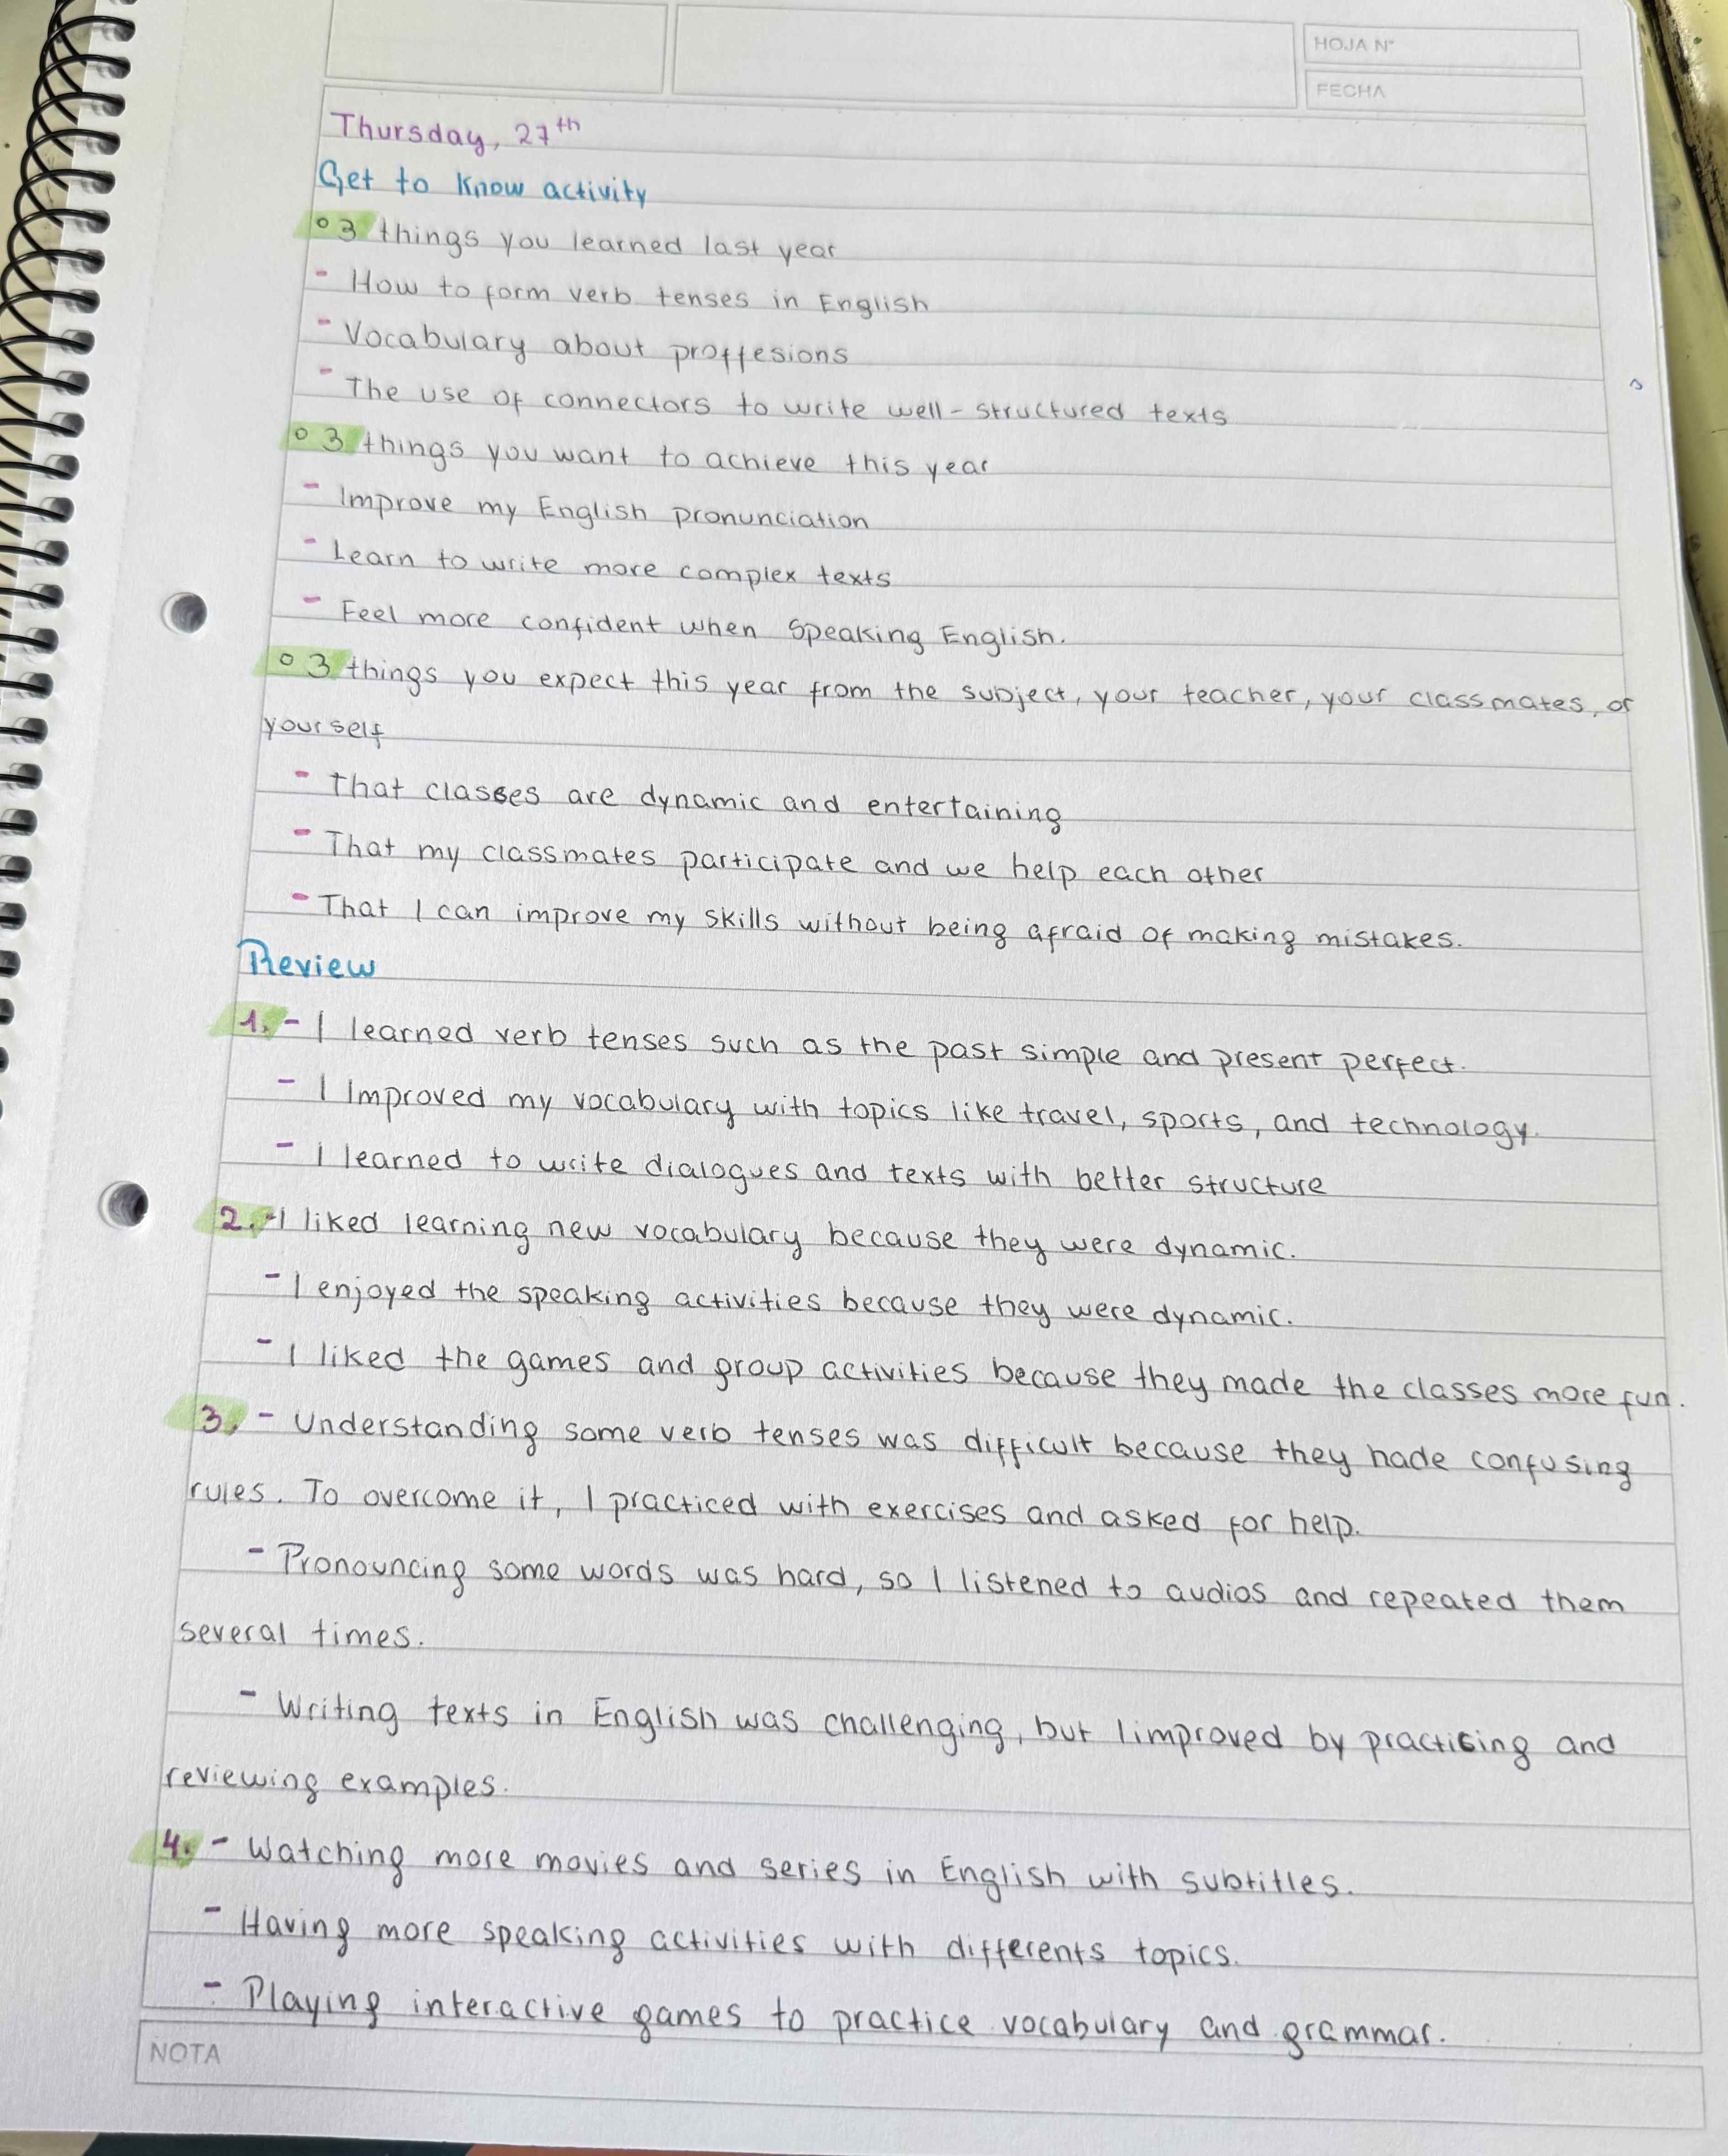 HOJA N°
FECHA
Thursday, 27th
Get to know activity
° 3 things you learned last year
- How to form verb tenses in English
- Vocabulary about proffesions
- The use of connectors to write well-structured texts
° 3 things you want to achieve this year
- Improve my English pronunciation
- Learn to write more complex texts
- Feel more confident when speaking English.
° 3 things you expect this year from the subject, your teacher, your classmates, or
yourself
- That classes are dynamic and entertaining
- That my classmates participate and we help each other
- That I can improve my skills without being afraid of making mistakes.
Review
1. - I learned verb tenses such as the past simple and present perfect.
- I Improved my vocabulary with topics like travel, sports, and technology.
- I learned to write dialogues and texts with better structure
2. - I liked learning new vocabulary because they were dynamic.
- I enjoyed the speaking activities because they were dynamic.
- I liked the games and group activities because they made the classes more fun.
3. - Understanding some verb tenses was difficult because they hade confusing
rules. To overcome it, I practiced with exercises and asked for help.
- Pronouncing some words was hard, so I listened to audios and repeated them
several times.
- Writing texts in English was challenging, but I improved by practicing and
reviewing examples.
4. - Watching more movies and series in English with subtitles.
- Having more speaking activities with differents topics.
- Playing interactive games to practice vocabulary and grammar.
NOTA